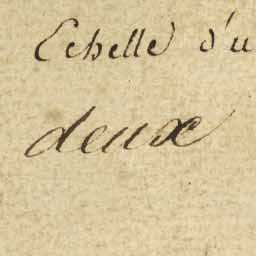 Echelle d'u
deux